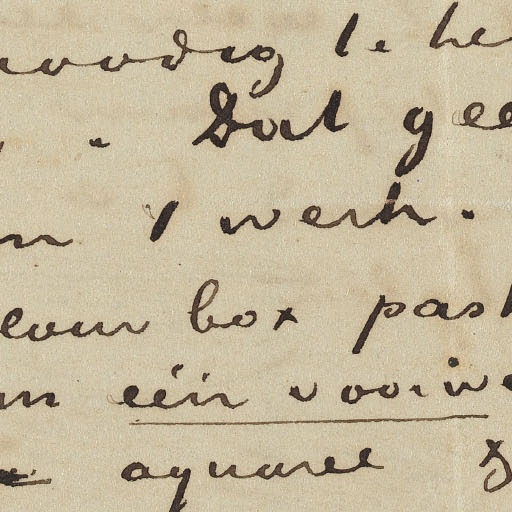 noodig te he
. Dat gee
n 't werk.
lour box past
n één voorwe
aquarel